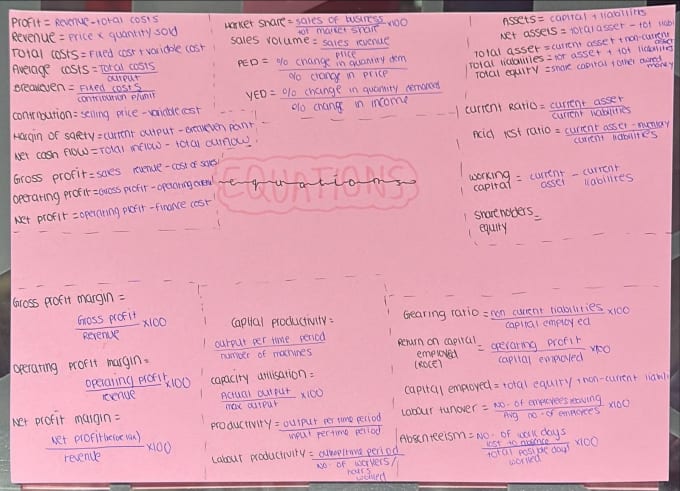 Profit = Revenue - total costs
Revenue = Price x quantity sold
Total costs = Fixed cost + variable cost
Average costs = Total costs
output
Breakeven = Fixed costs
contribution p/unit
contribution = selling price - variable cost
Margin of safety = current output - Breakeven point
Net cash flow = Total inflow - total outflow
Gross profit = sales revenue - cost of sales
Operating profit = Gross profit - operating
Net profit = operating profit - finance cost
Market share = sales of business x100
tot market share
sales volume = sales revenue
price
PED = % change in quantity dem
% change in price
YED = % change in quantity demanded
% change in income
EQUATIONS
equations
Assets = capital + liabilities
Net assets = total asset - tot liabi
Total asset = current asset + non-current asset
Total liabilities = tot asset + tot liabilities
Total equity = share capital + other owned money
current Ratio = current asset
current liabilities
Acid test ratio = current asset - inventory
current liabilities
working capital = current asset - current liabilities
shareholders equity =
Gross profit margin =
Gross profit x100
Revenue
Operating profit margin =
operating profit x100
revenue
Net profit margin =
Net profit (before tax) x100
revenue
Capital productivity =
output per time period
number of machines
capacity utilisation =
Actual output x100
max output
productivity = output per time period
input per time period
Labour productivity = output/time period
No. of workers/
hours
worked
Gearing ratio = non current liabilities x100
capital employed
Return on capital employed (ROCE) = operating profit x100
capital employed
capital employed = total equity + non-current liabili
Labour turnover = No. of employees leaving x100
Avg no. of employees
Absenteeism = No. of work days
lost to absence x100
total posible days
worked